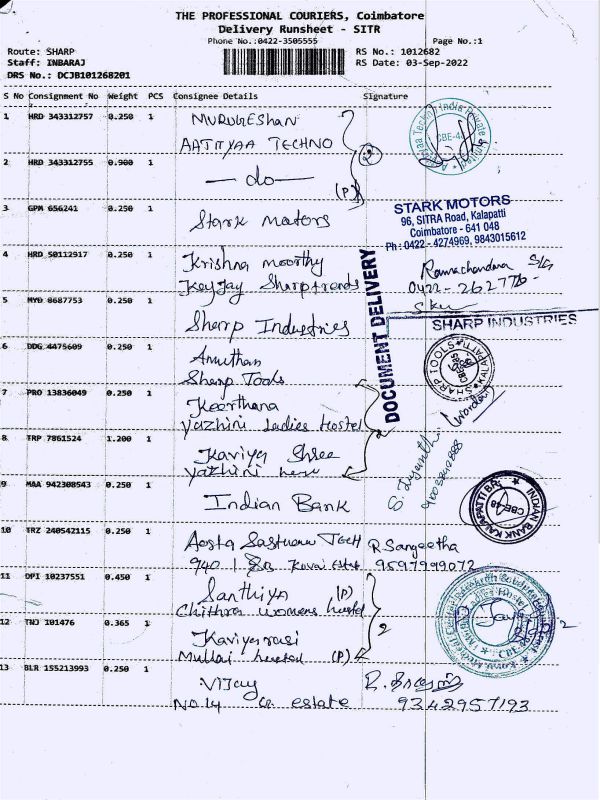 THE PROFESSIONAL COURIERS, Coimbatore
Delivery Runsheet - SITR
Phone No.:0422-3505555 Page No.:1
Route: SHARP RS No.: 1012682
Staff: INBARAJ RS Date: 03-Sep-2022
DRS No.: DCJB101268201
S No Consignment No Weight PCS Consignee Details Signature
1 HRD 343312757 0.250 1 MURUGESHAN
AATITYAA TECHNO
2 HRD 343312755 0.900 1 — do — (P)
3 GPM 656241 0.250 1 Stark motors
STARK MOTORS
96, SITRA Road, Kalapatti
Coimbatore - 641 048
Ph : 0422 - 4274969, 9843015612
4 HRD 50112917 0.250 1 Krishna moorthy
Keyjay Sharptrends
Ramachandra
0422-262776-
DOCUMENT DELIVERY
5 MYD 8687753 0.250 1 Sharp Industries
SHARP INDUSTRIES
6 DDG 4475609 0.250 1 Amuthan
Sharp Tools
SHARP TOOLS KALAPATTI
7 PRO 13836049 0.250 1 Keerthana
Yazhini Ladies hostel
(Warden)
8 TRP 7861524 1.200 1 Kaviya Shree
yazhini
9 MAA 942308543 0.250 1 Indian Bank
INDIAN BANK KALAPATTI CBE-48
10 TRZ 240542115 0.250 1 Aosta TECH R Sangeetha
940 Kovai Estate 9597999072
11 OPI 10237551 0.450 1 Santhiya (P)
Chithra womens hostel
12 TNJ 101476 0.365 1 Kaviyarasi
Mullai hostel (P) 2
13 BLR 155213993 0.250 1 Vijay
No.14 estate 9342957193